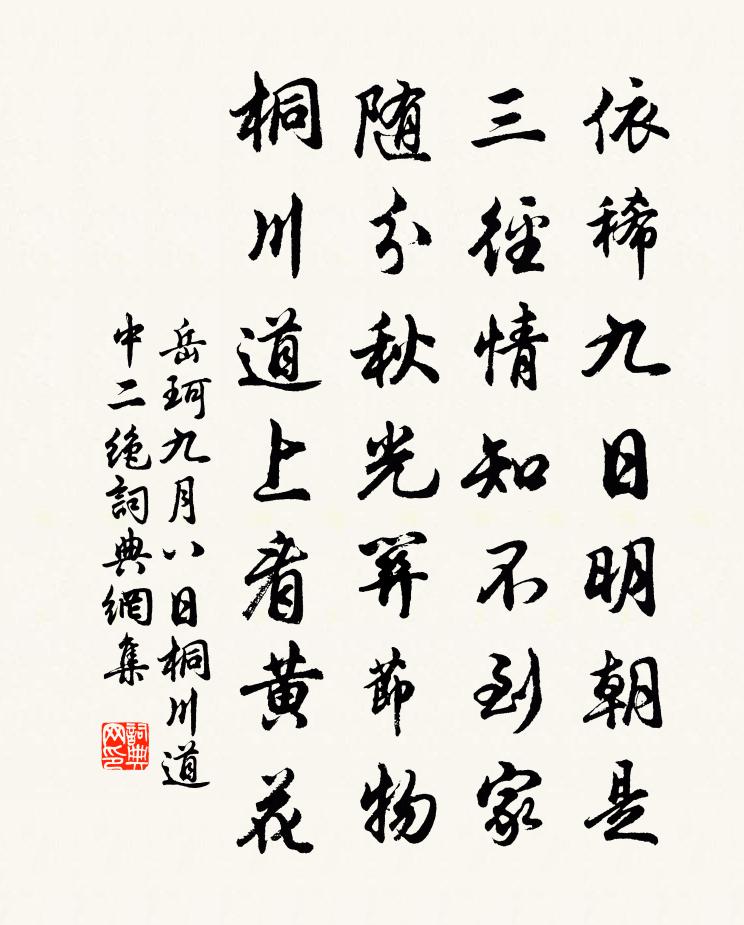 依稀九日明朝是
三徑情知不到家
随分秋光算節物
桐川道上看黄花
岳珂九月八日桐川道
中二絶詞典網集
詞典网印